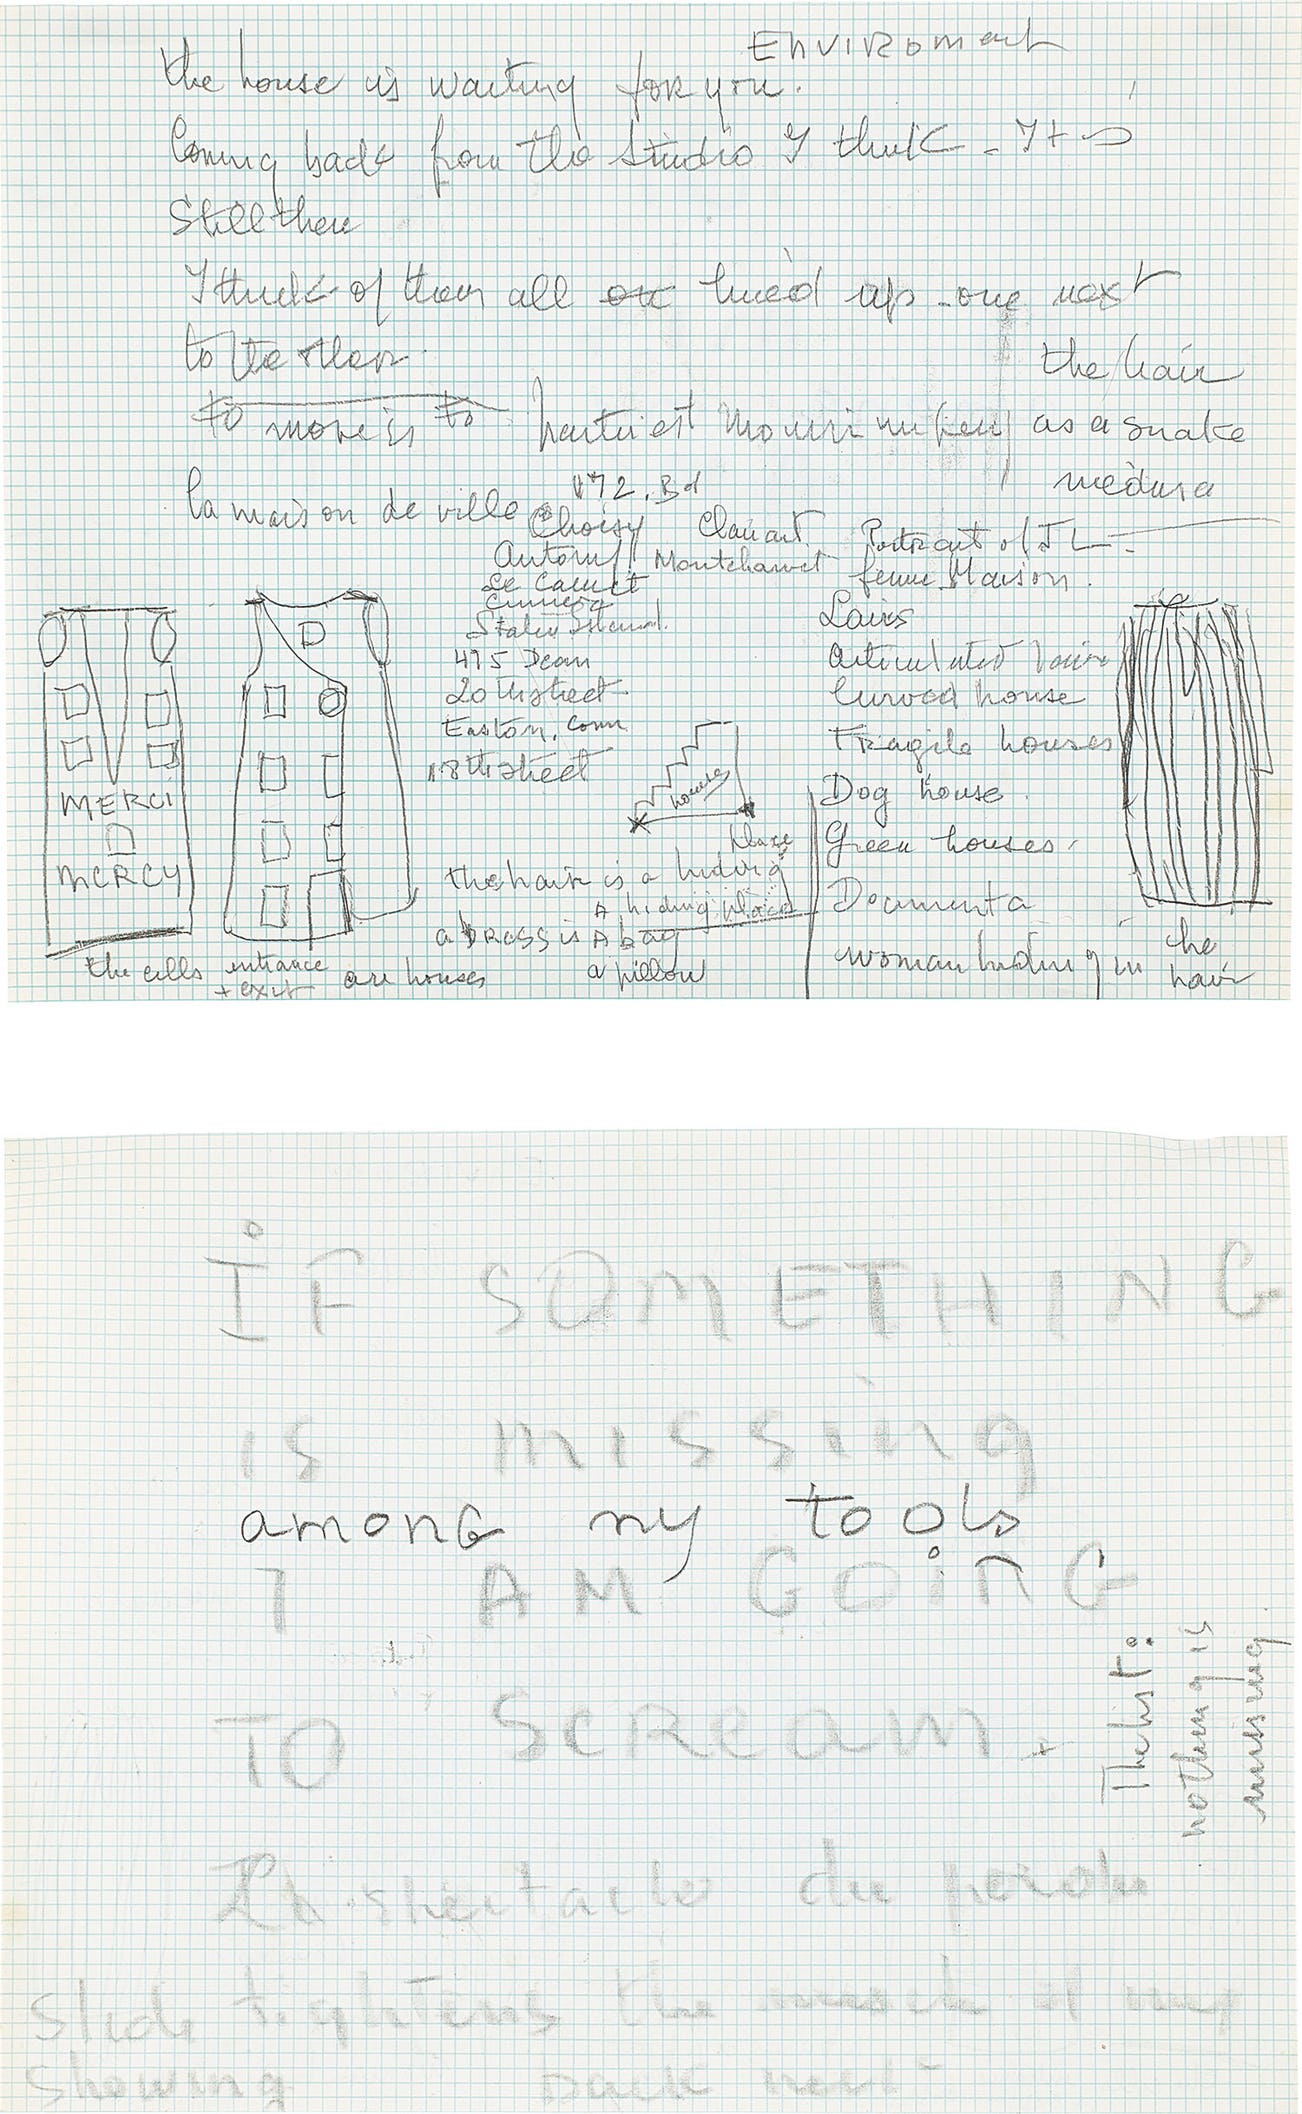 Enviroment
the house is waiting for you.
Coming back from the studio I think - It is
Still there
I think of them all lined up - one next
to the other.
the hair
to move is to partir est mourir un peu as a snake
medusa
la maison de ville 172. Bd
Choisy Clamart Portrait of J L
Antony Montchauvet femme Maison.
Le Cannet
Lairs
Staten Island.
articulated lair
475 Dean
20th street
Curved house
Easton, Conn
Fragile houses
18th street
houses
Dog house
Green houses
Documenta
woman hiding in the
hair
D
MERCI
MERCY
the hair is a hiding
place
A hiding place
a DRESS is A bag
a pillow
the cells entrance are houses
+ exit
IF SOMETHING
is missing
among my tools
I AM GOING
TO SCReam
The list:
nothing is
missing.
spectacle du
Slide tightens the of my
Showing